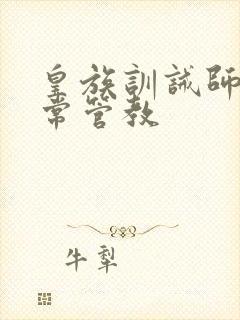 皇族訓誡師
常管教
牛犁